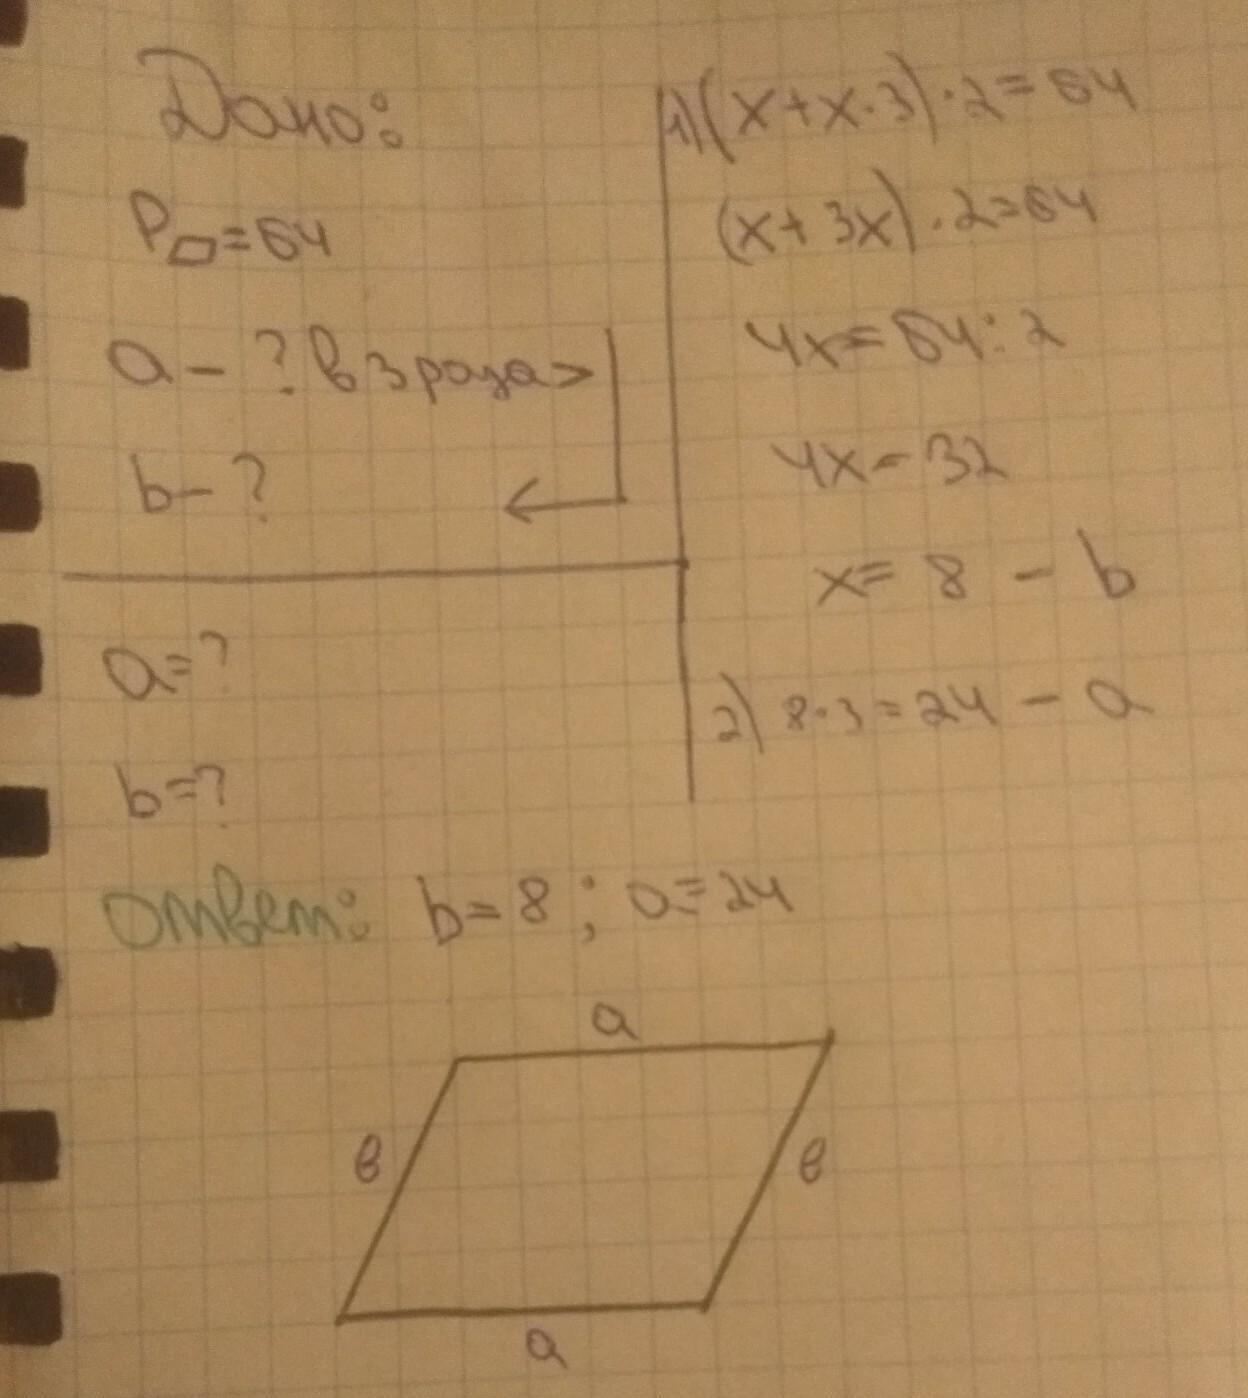 Дано:
P▱=64
a - ? в 3 раза >
b - ?
a=?
b=?
1) (x+x·3)·2=64
(x+3x)·2=64
4x=64:2
4x=32
x=8 - b
2) 8·3=24 - a
Ответ: b=8; a=24
a
в
в
a